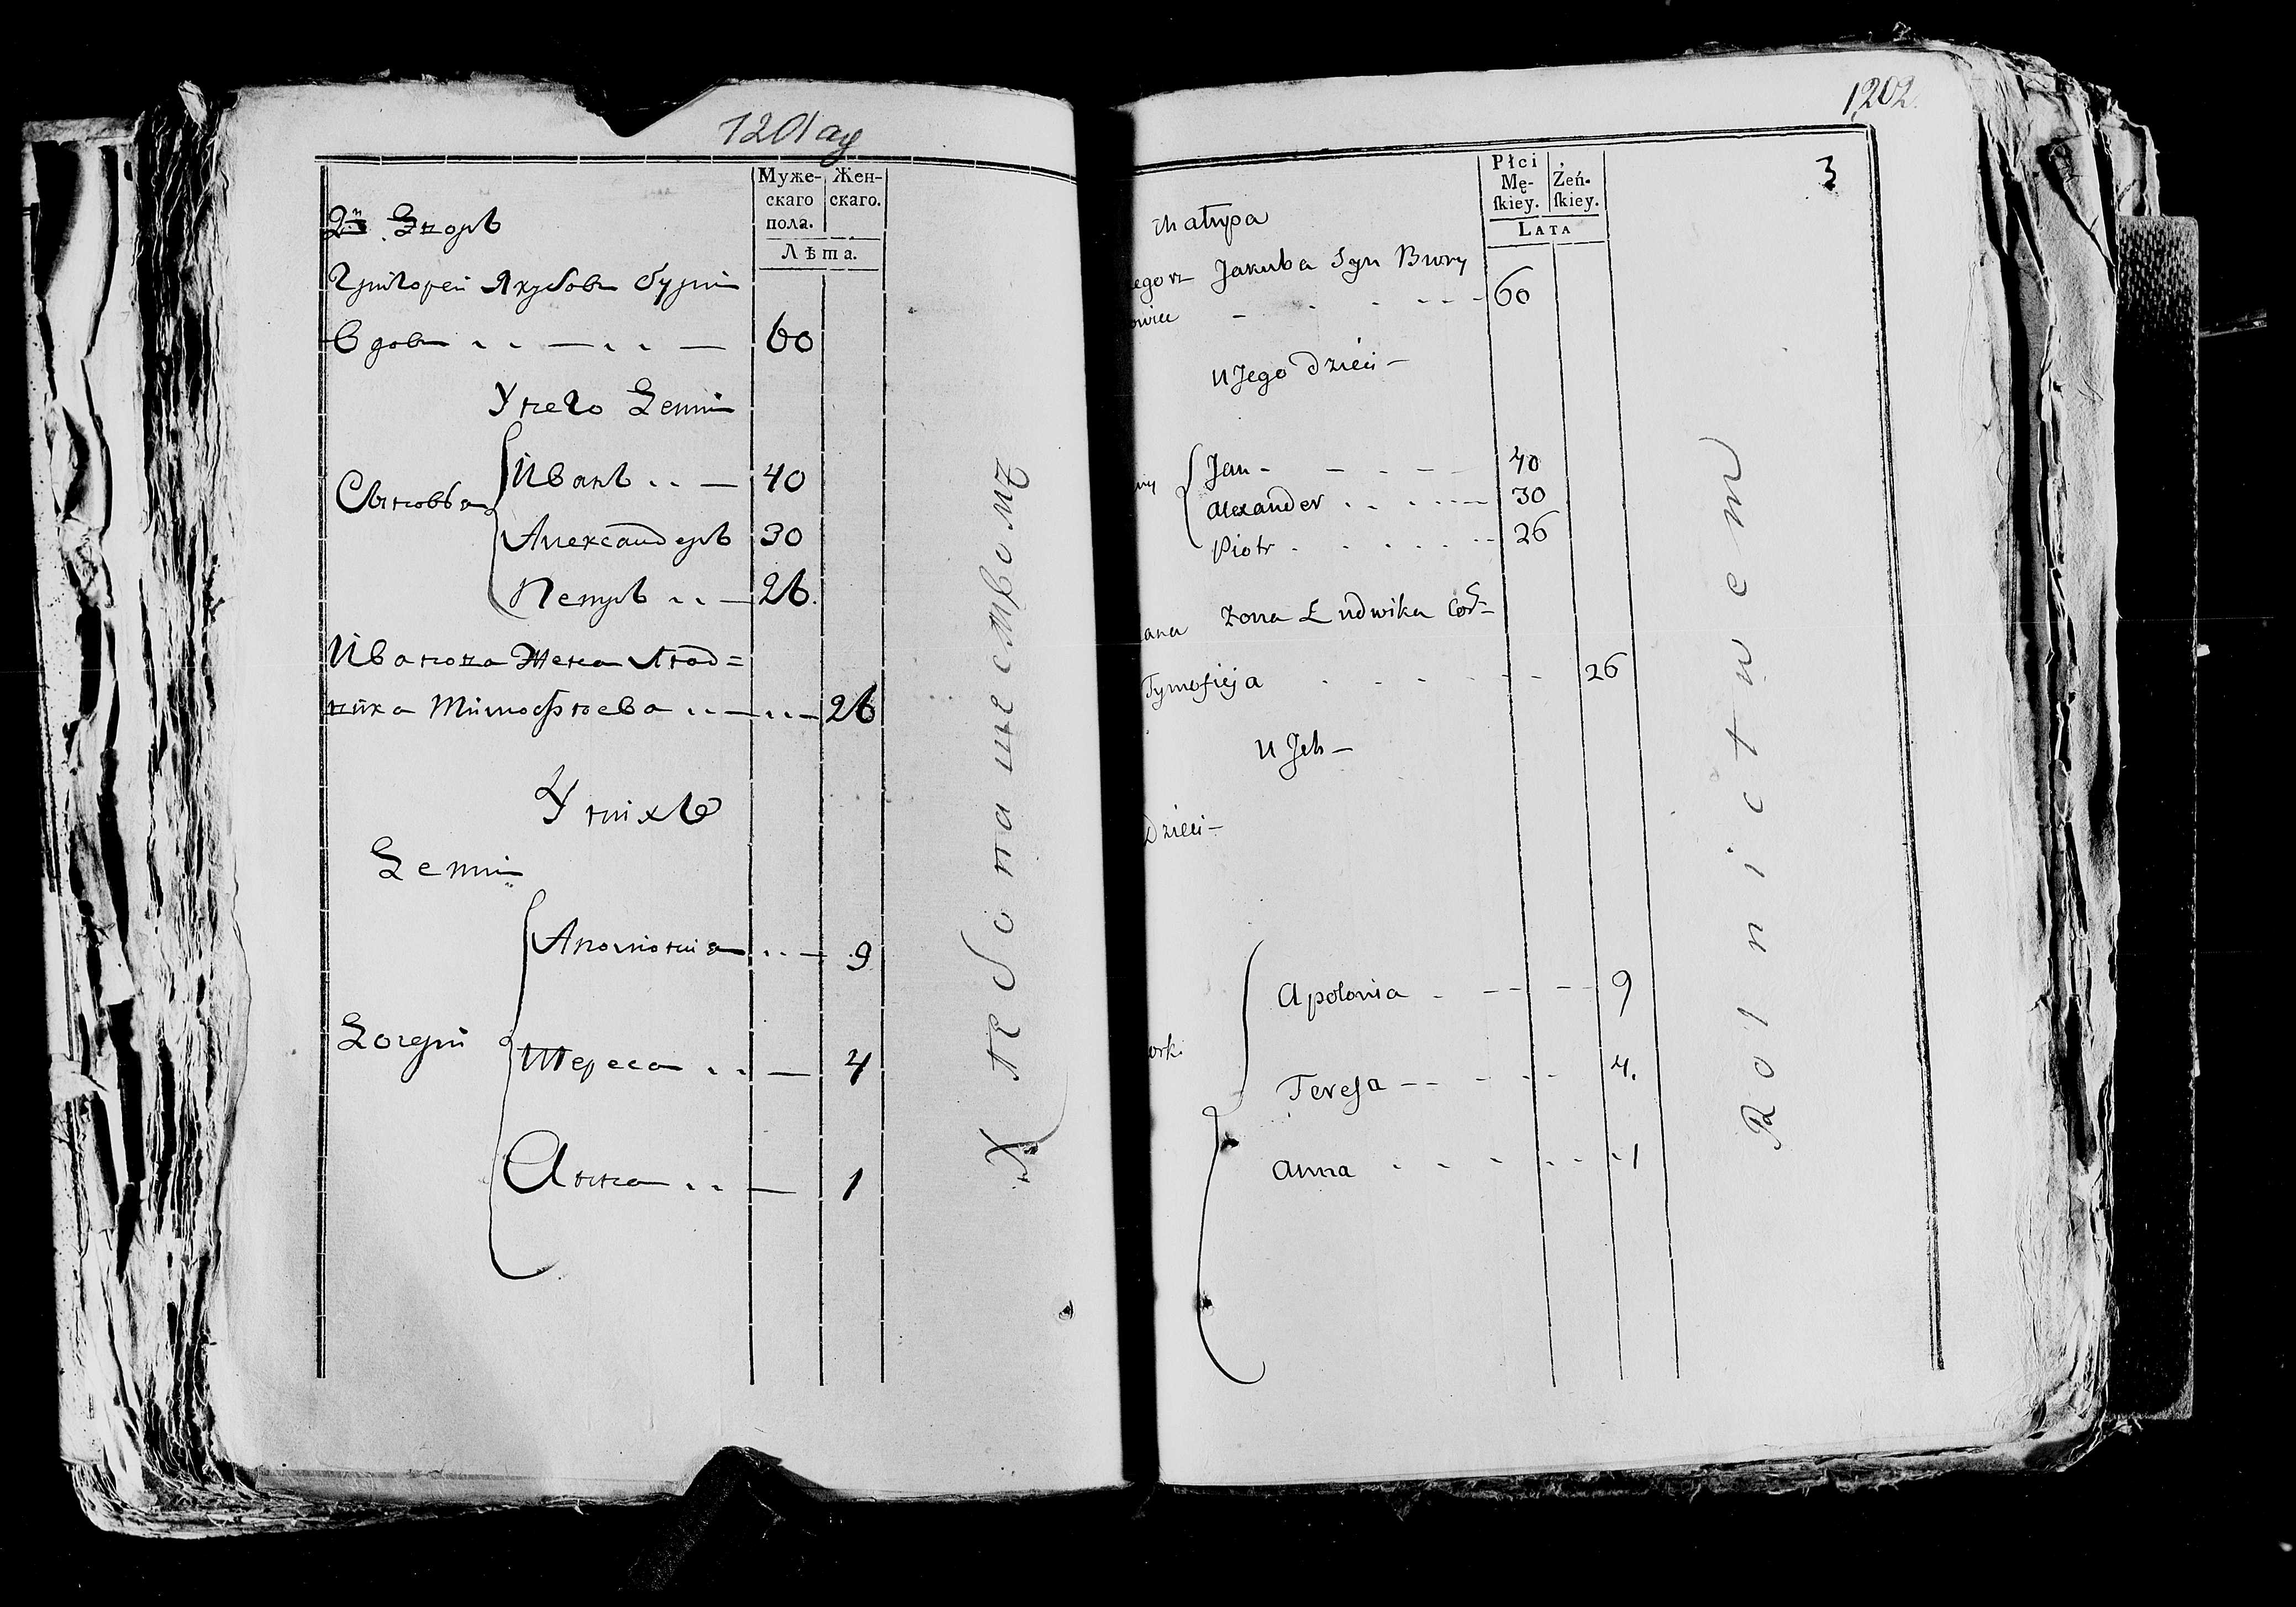 1201
Муже-
скаго
пола.
Жен-
скаго.
Лѣта.
Григорей Якубовъ
Вдовъ 60
У него Дети
Сыновья
Иванъ 40
Александеръ 30
Петръ 26.
Иванова Жена Люд=
вика Тимофѣева 26
У нихъ
Дети
Апологния 9
Дочери
Тереса 4
Анна 1
Хлебопашествомъ
1202.
3
Płci
Mę-
ſkiey.
Żeń-
ſkiey.
LATA
egorz Jakuba Syn Bury
owicz 60
U Jego Dzieci
Jan 40
Alexander 30
Piotr 26
ana Zona Ludwika Cor=
Tymofieja 26
U Jch
Dzieci
Apolonia 9
ork
Tereſa 4.
Anna 1
Rolnictwem